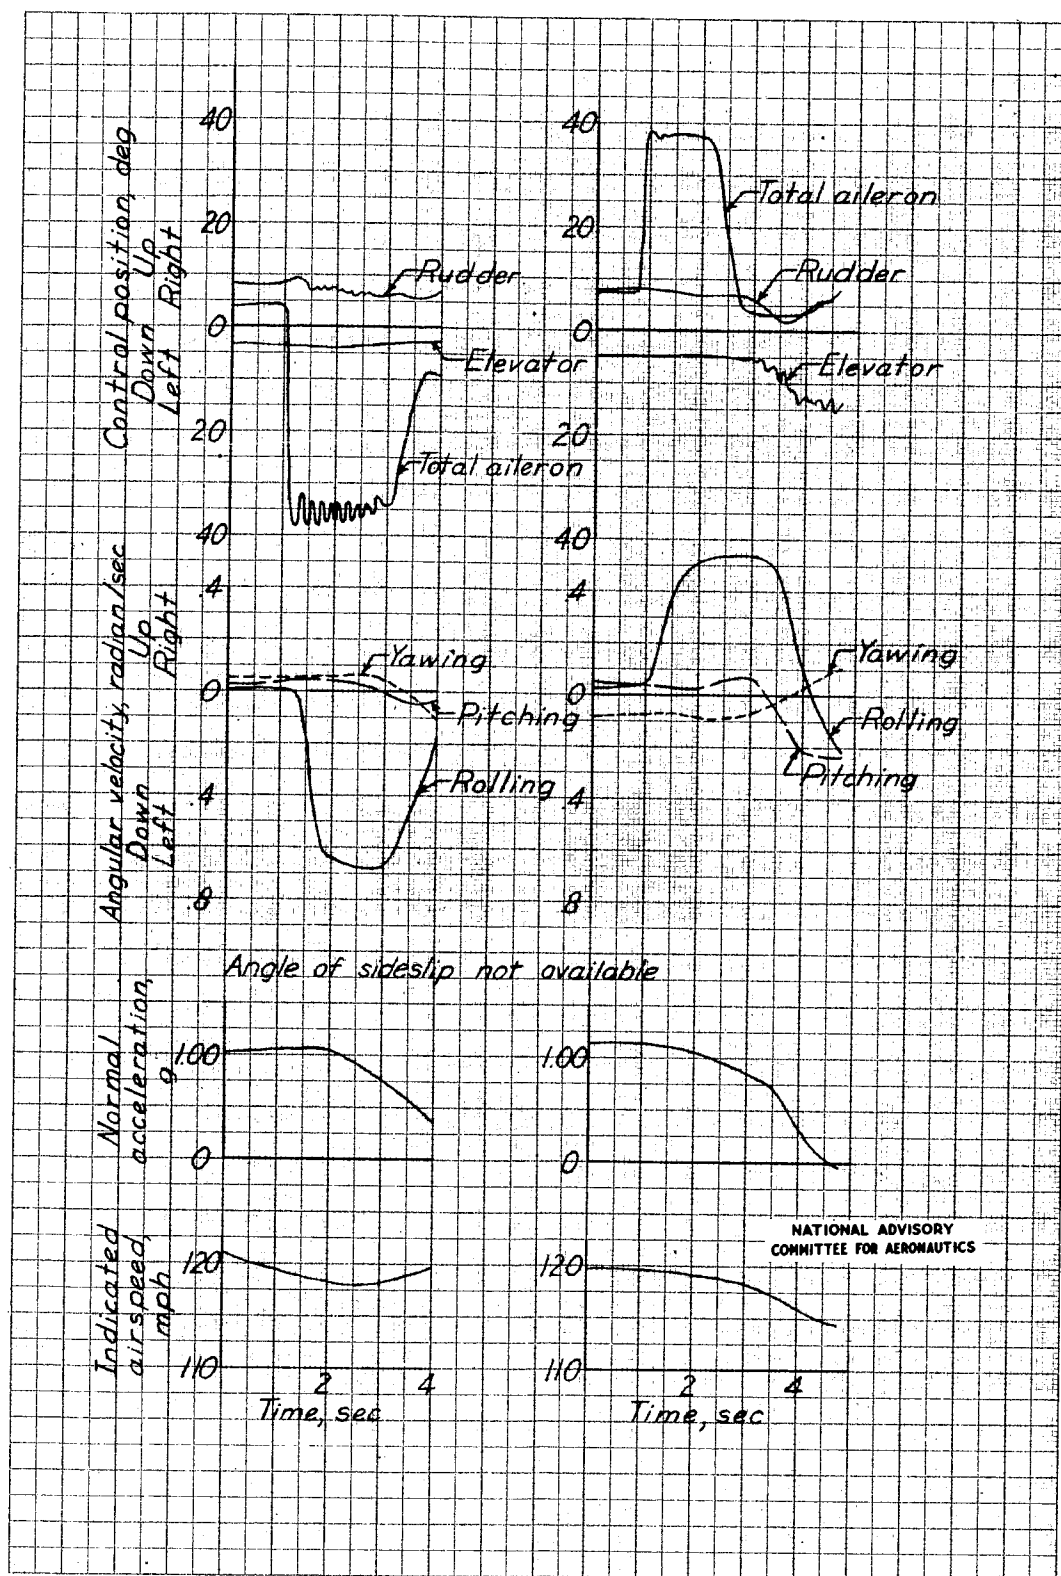 Control position, deg
Down Up
Left Right
40
20
0
20
40
Rudder
Elevator
Total aileron
40
20
0
20
40
Total aileron
Rudder
Elevator
Angular velocity, radian/sec
Down Up
Left Right
.4
0
.4
.8
Yawing
Pitching
Rolling
.4
0
.4
.8
Yawing
Rolling
Pitching
Angle of sideslip not available
Normal
acceleration,
g
1.00
0
1.00
0
NATIONAL ADVISORY
COMMITTEE FOR AERONAUTICS
Indicated
airspeed,
mph
120
110
2 4
Time, sec
120
110
2 4
Time, sec